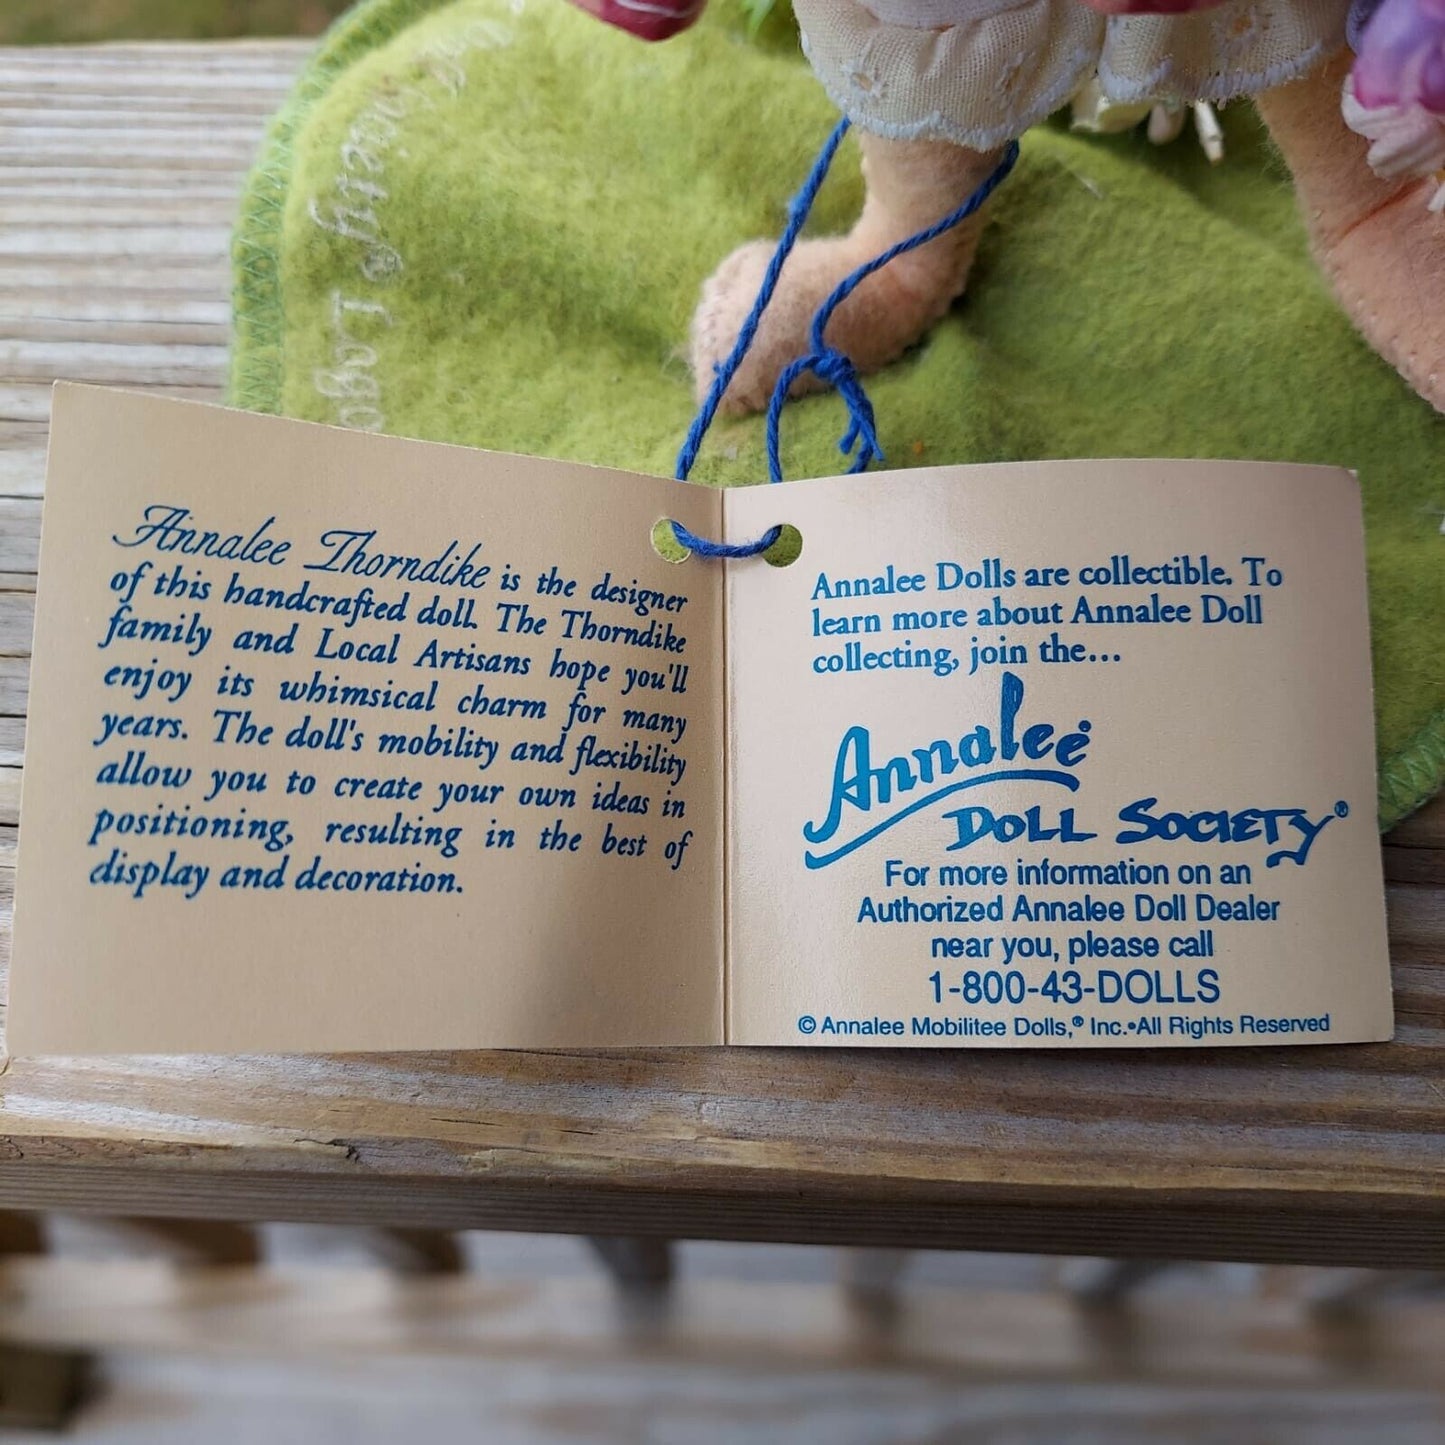 Logo
Annalee Thorndike is the designer
of this handcrafted doll. The Thorndike
family and Local Artisans hope you'll
enjoy its whimsical charm for many
years. The doll's mobility and flexibility
allow you to create your own ideas in
positioning, resulting in the best of
display and decoration.
Annalee Dolls are collectible. To
learn more about Annalee Doll
collecting, join the...
Annalee
DOLL SOCIETY®
For more information on an
Authorized Annalee Doll Dealer
near you, please call
1-800-43-DOLLS
© Annalee Mobilitee Dolls,® Inc.•All Rights Reserved